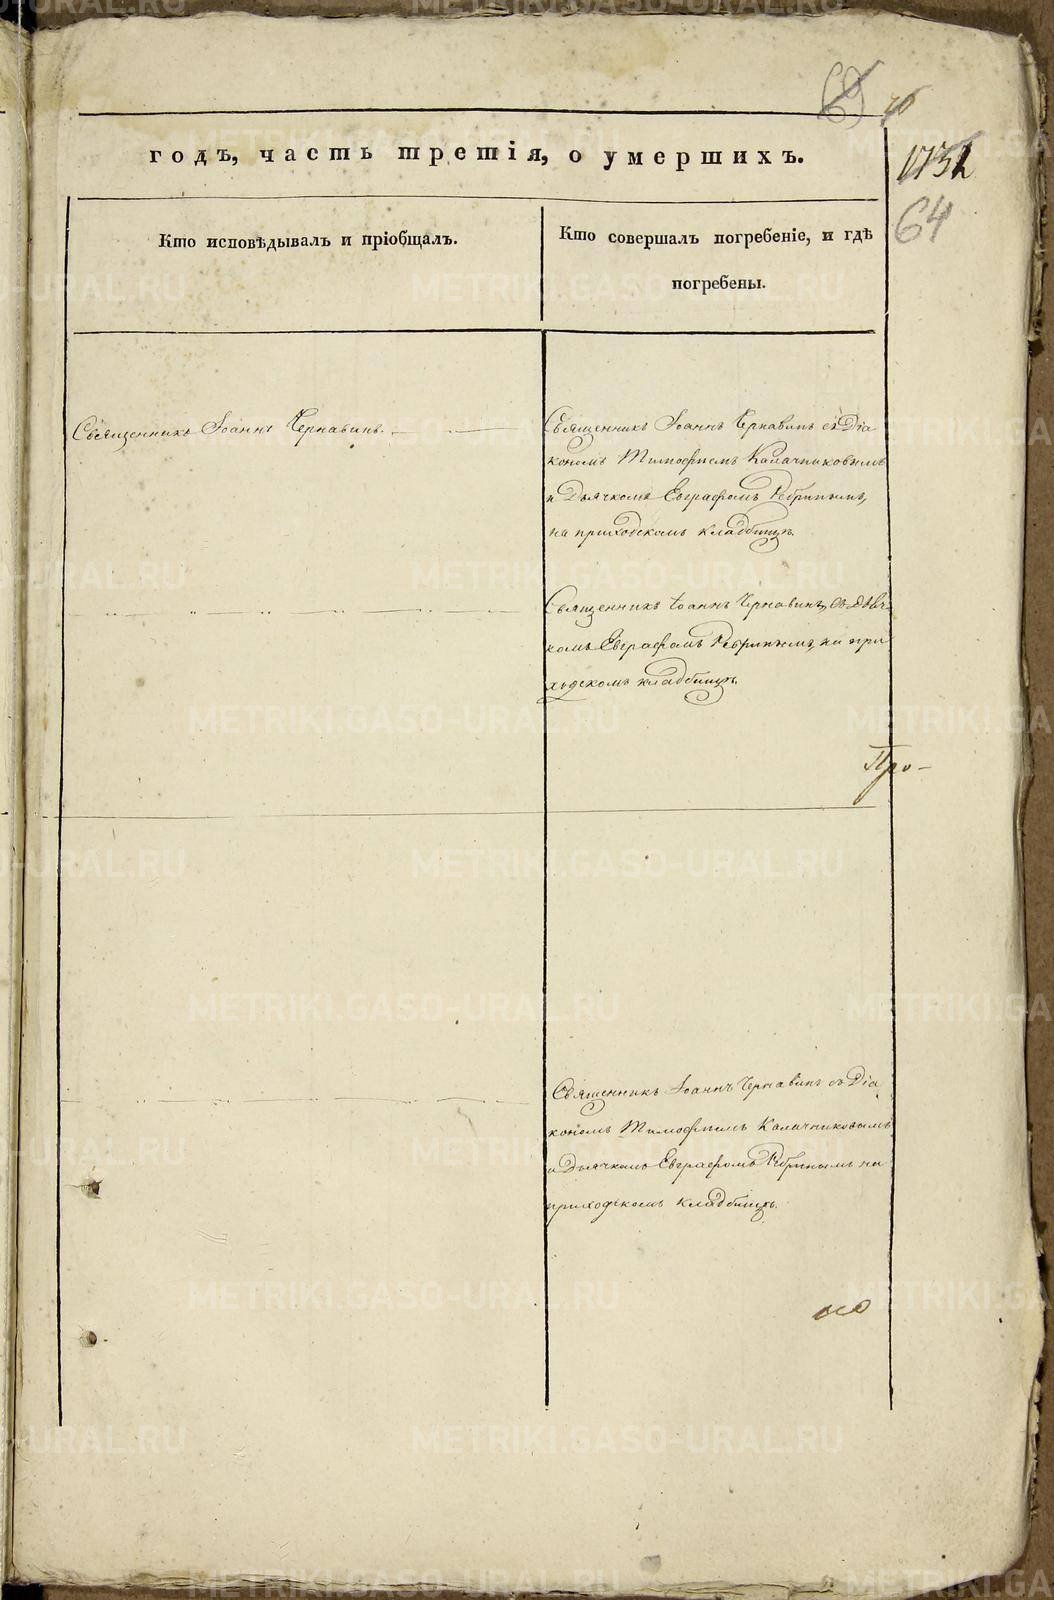 69 70
годъ, часть третія, о умершихъ.
173
64
Кто исповѣдывалъ и пріобщалъ.
Кто совершалъ погребеніе, и гдѣ
погребены.
Священникъ Іоаннъ Чернавинъ.
Священникъ Іоаннъ Чернавинъ съ Діа
кономъ Тимофеемъ Калачниковымъ
и Дьячкомъ Евграфомъ Ребринымъ,
на приходскомъ кладбищѣ.
Священникъ Іоаннъ Чернавинъ, съ Дьяч
комъ Евграфомъ Ребринымъ, на при
ходскомъ кладбищѣ.
Про-
Священникъ Іоаннъ Чернавинъ съ Діа
кономъ Тимофеемъ Калачниковымъ
и Дьячкомъ Евграфомъ Ребринымъ на
приходскомъ кладбищѣ.
METRIKI.GASO-URAL.RU